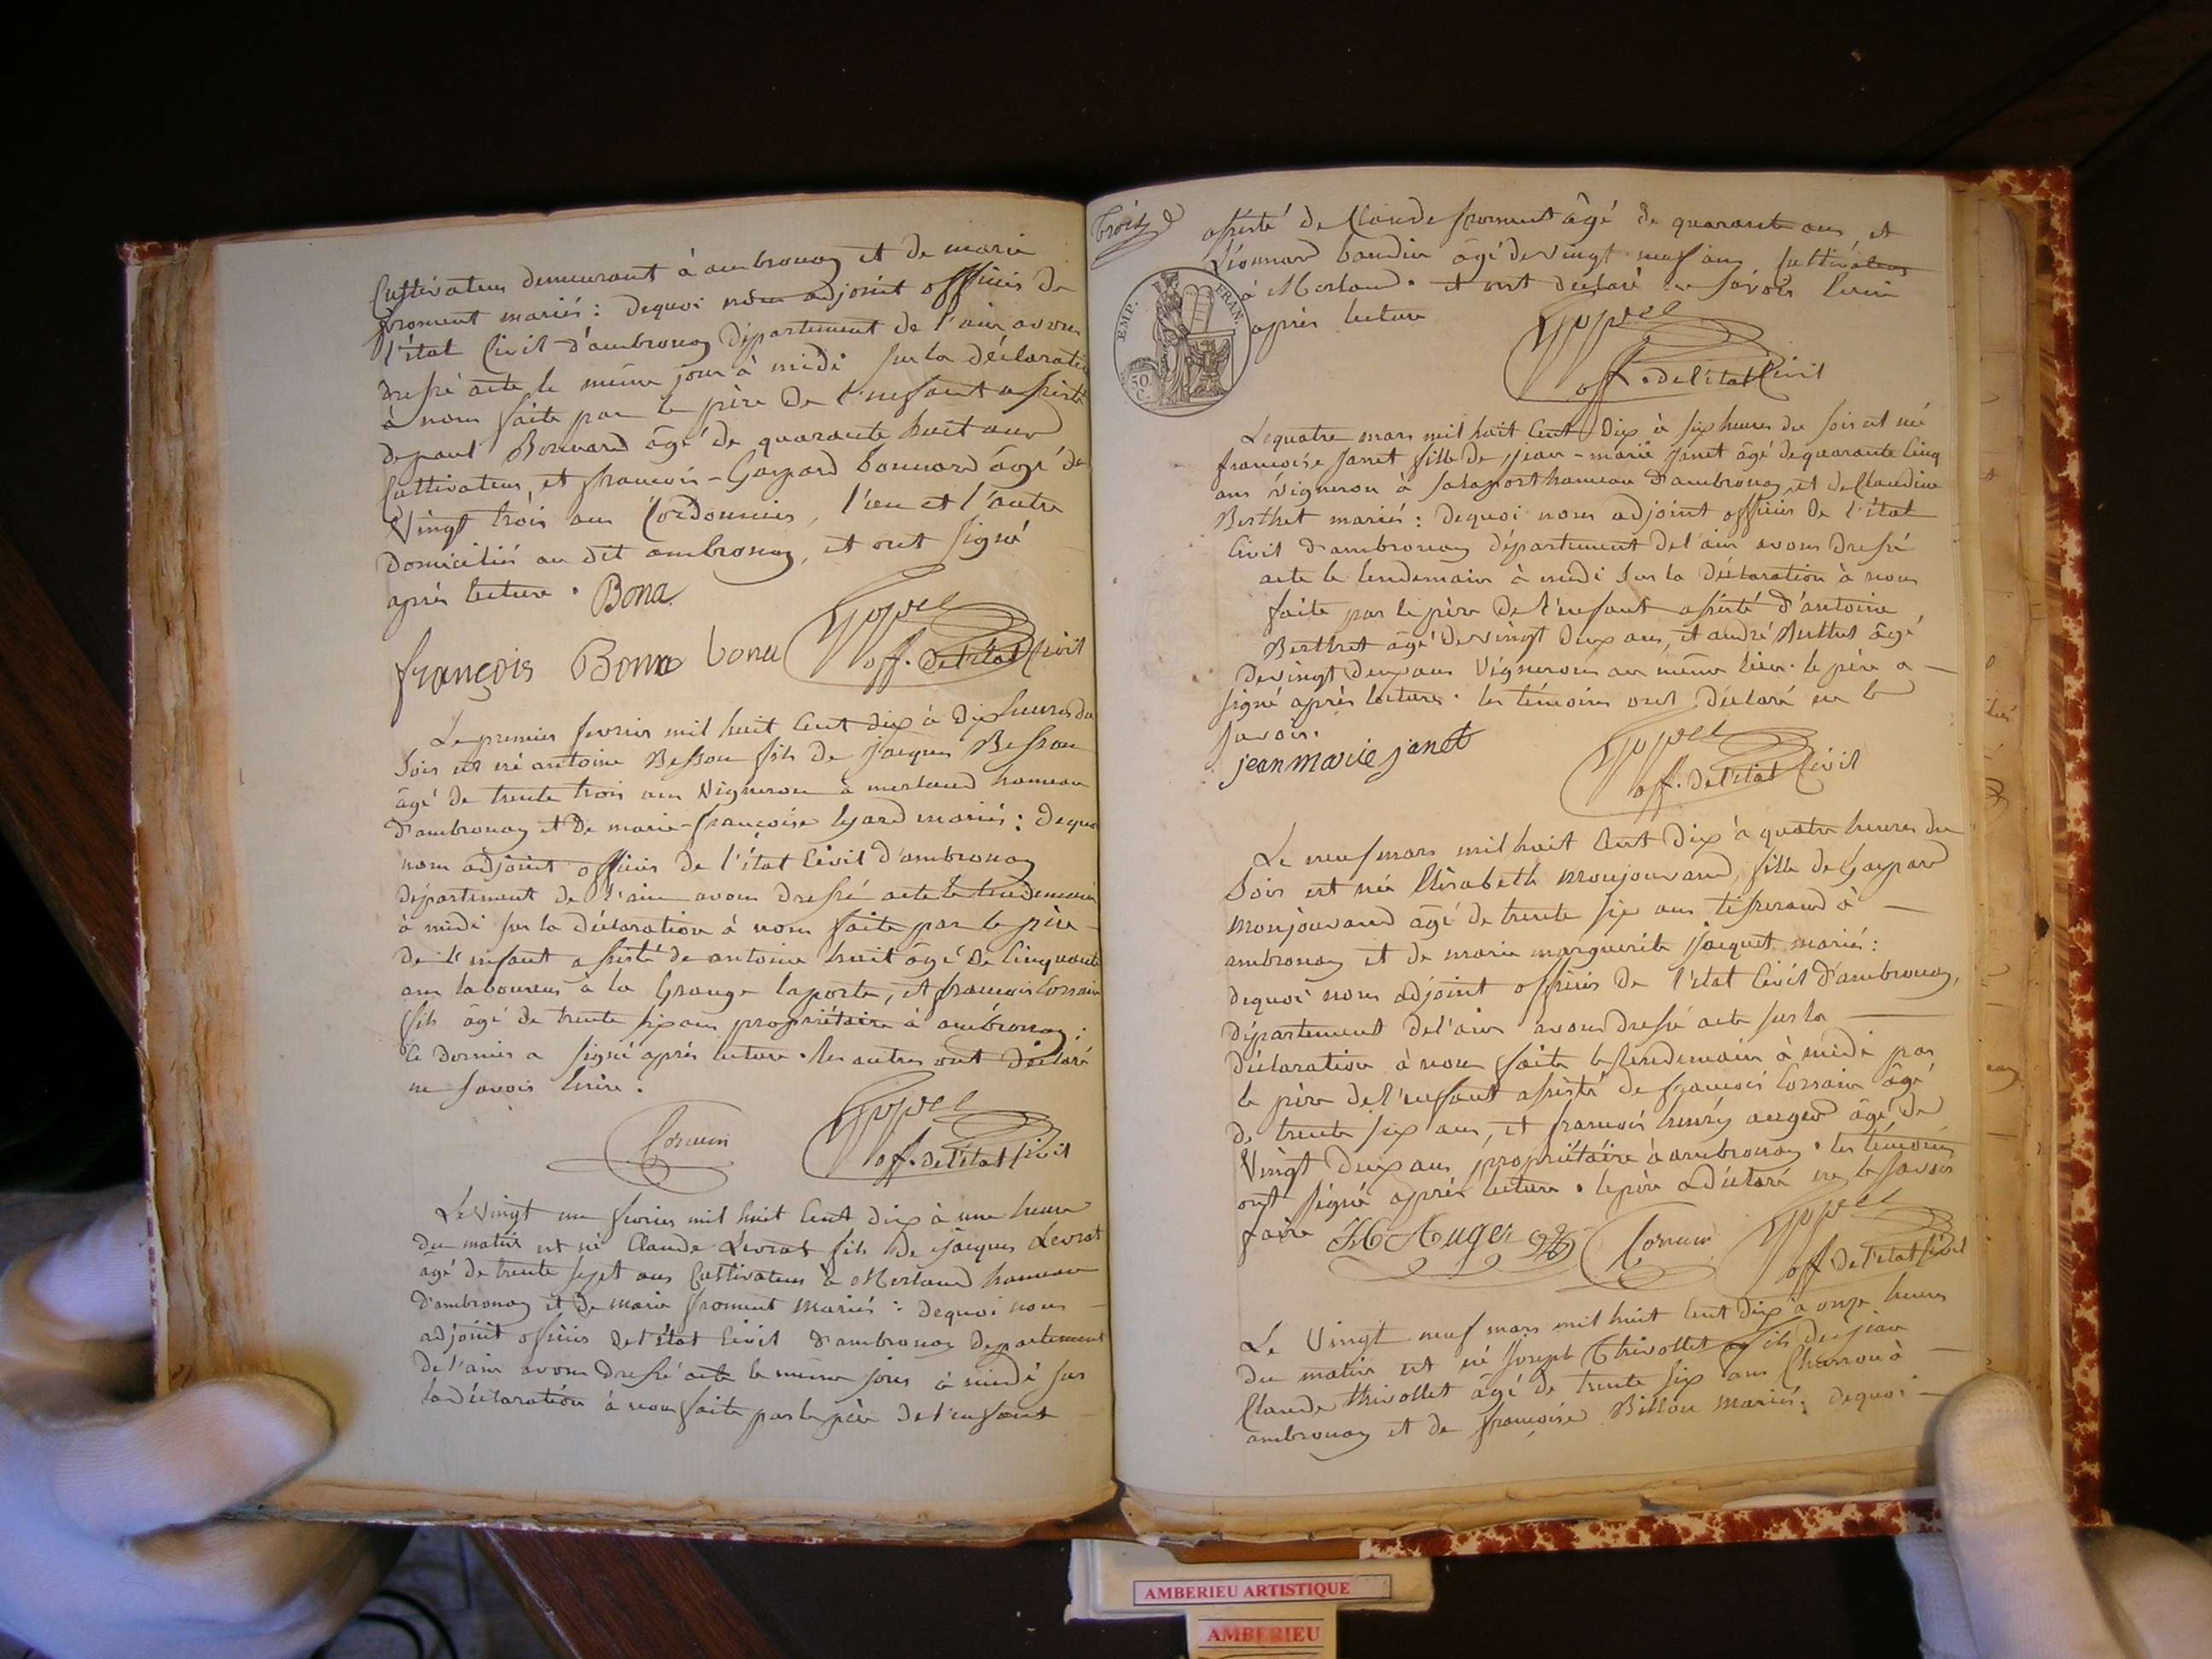 Cultivateur demeurant à ambronay et de marie
froment mariés : dequoi nous adjoint officier de
l'état Civil d'ambronay département de l'ain avons
dressé acte le même jour à midi sur la déclaration
à nous faite par le père de l'enfant assisté
de paul Bonnard âgé de quarante huit ans
Cultivateur, et francois-Gaspard bonnard âgé de
Vingt trois ans Cordonnier, l'un et l'autre
domiciliés au dit ambronay, et ont signé
après lecture . Bona
françois Bona bona
off. de l'état Civil
Le premier fevrier mil huit Cent dix à dix heures du
soir est né antoine Besson fils de jacques Besson
âgé de trente trois ans Vigneron à merland hameau
d'ambronay et de marie-francoise lyard mariés : dequoi
nous adjoint officier de l'état Civil d'ambronay
département de l'ain avons dressé acte le lendemain
à midi sur la déclaration à nous faite par le père
de l'enfant assisté de antoine huit âgé de Cinquante
ans laboureur à la Grange laporte, et francois Corrain
fils âgé de trente six ans propriétaire à ambronay ;
le dernier a signé après lecture . les autres ont déclaré
ne savoir Ecrire .
off. de l'état Civil
Le Vingt un fevrier mil huit Cent dix à une heure
du matin est né Claude Levrat fils de jacques Levrat
âgé de trente sept ans Cultivateur à Merland hameau
d'ambronay et de marie froment mariés : dequoi nous
adjoint officier de l'état Civil d'ambronay departement
de l'ain avons dressé acte le même jour à midi sur
la déclaration à nous faite par le père de l'enfant
assisté de Claude froment âgé de quarante ans, et
Léonnard baudin âgé de vingt neuf ans Cultivateurs
à Merland . et ont déclaré ne savoir Ecrire
après lecture
EMP. FRAN.
50 C.
off. de l'état Civil
Le quatre mars mil huit Cent dix à six heures du soir est née
francoise Janet fille de jean-marie Janet âgé de quarante Cinq
ans Vigneron à salaport hameau d'ambronay et de Claudine
Berthet mariés : dequoi nous adjoint officier de l'état
Civil d'ambronay département de l'ain avons dressé
acte le lendemain à midi sur la déclaration à nous
faite par le père de l'enfant assisté d'antoine
Berthet âgé de vingt deux ans, et andré Berthet âgé
de vingt deux ans Vignerons au même lieu . le père a
signé après lecture . les témoins ont déclaré ne le
savoir .
jean marie janet
off. de l'état Civil
Le neuf mars mil huit Cent dix à quatre heures du
soir est née Elisabeth monjouvand, fille de Gaspard
monjouvand âgé de trente six ans tisserand à
ambronay et de marie marguerite jacquet mariés :
dequoi nous adjoint officier de l'état Civil d'ambronay,
département de l'ain avons dressé acte sur la
déclaration à nous faite le lendemain à midi par
le père de l'enfant assisté de francois Corrain âgé
de trente six ans, et francois henry auger âgé de
Vingt deux ans propriétaire à ambronay . les témoins
ont signé après lecture . le père a déclaré ne le savoir
faire Auger
off de l'état Civil
Le Vingt neuf mars mil huit Cent dix à onze heures
du matin est né Joseph Thivollet fils de jean
Claude thivollet âgé de trente six ans Charron à
ambronay et de françoise Billon mariés : dequoi
AMBERIEU ARTISTIQUE
AMBERIEU